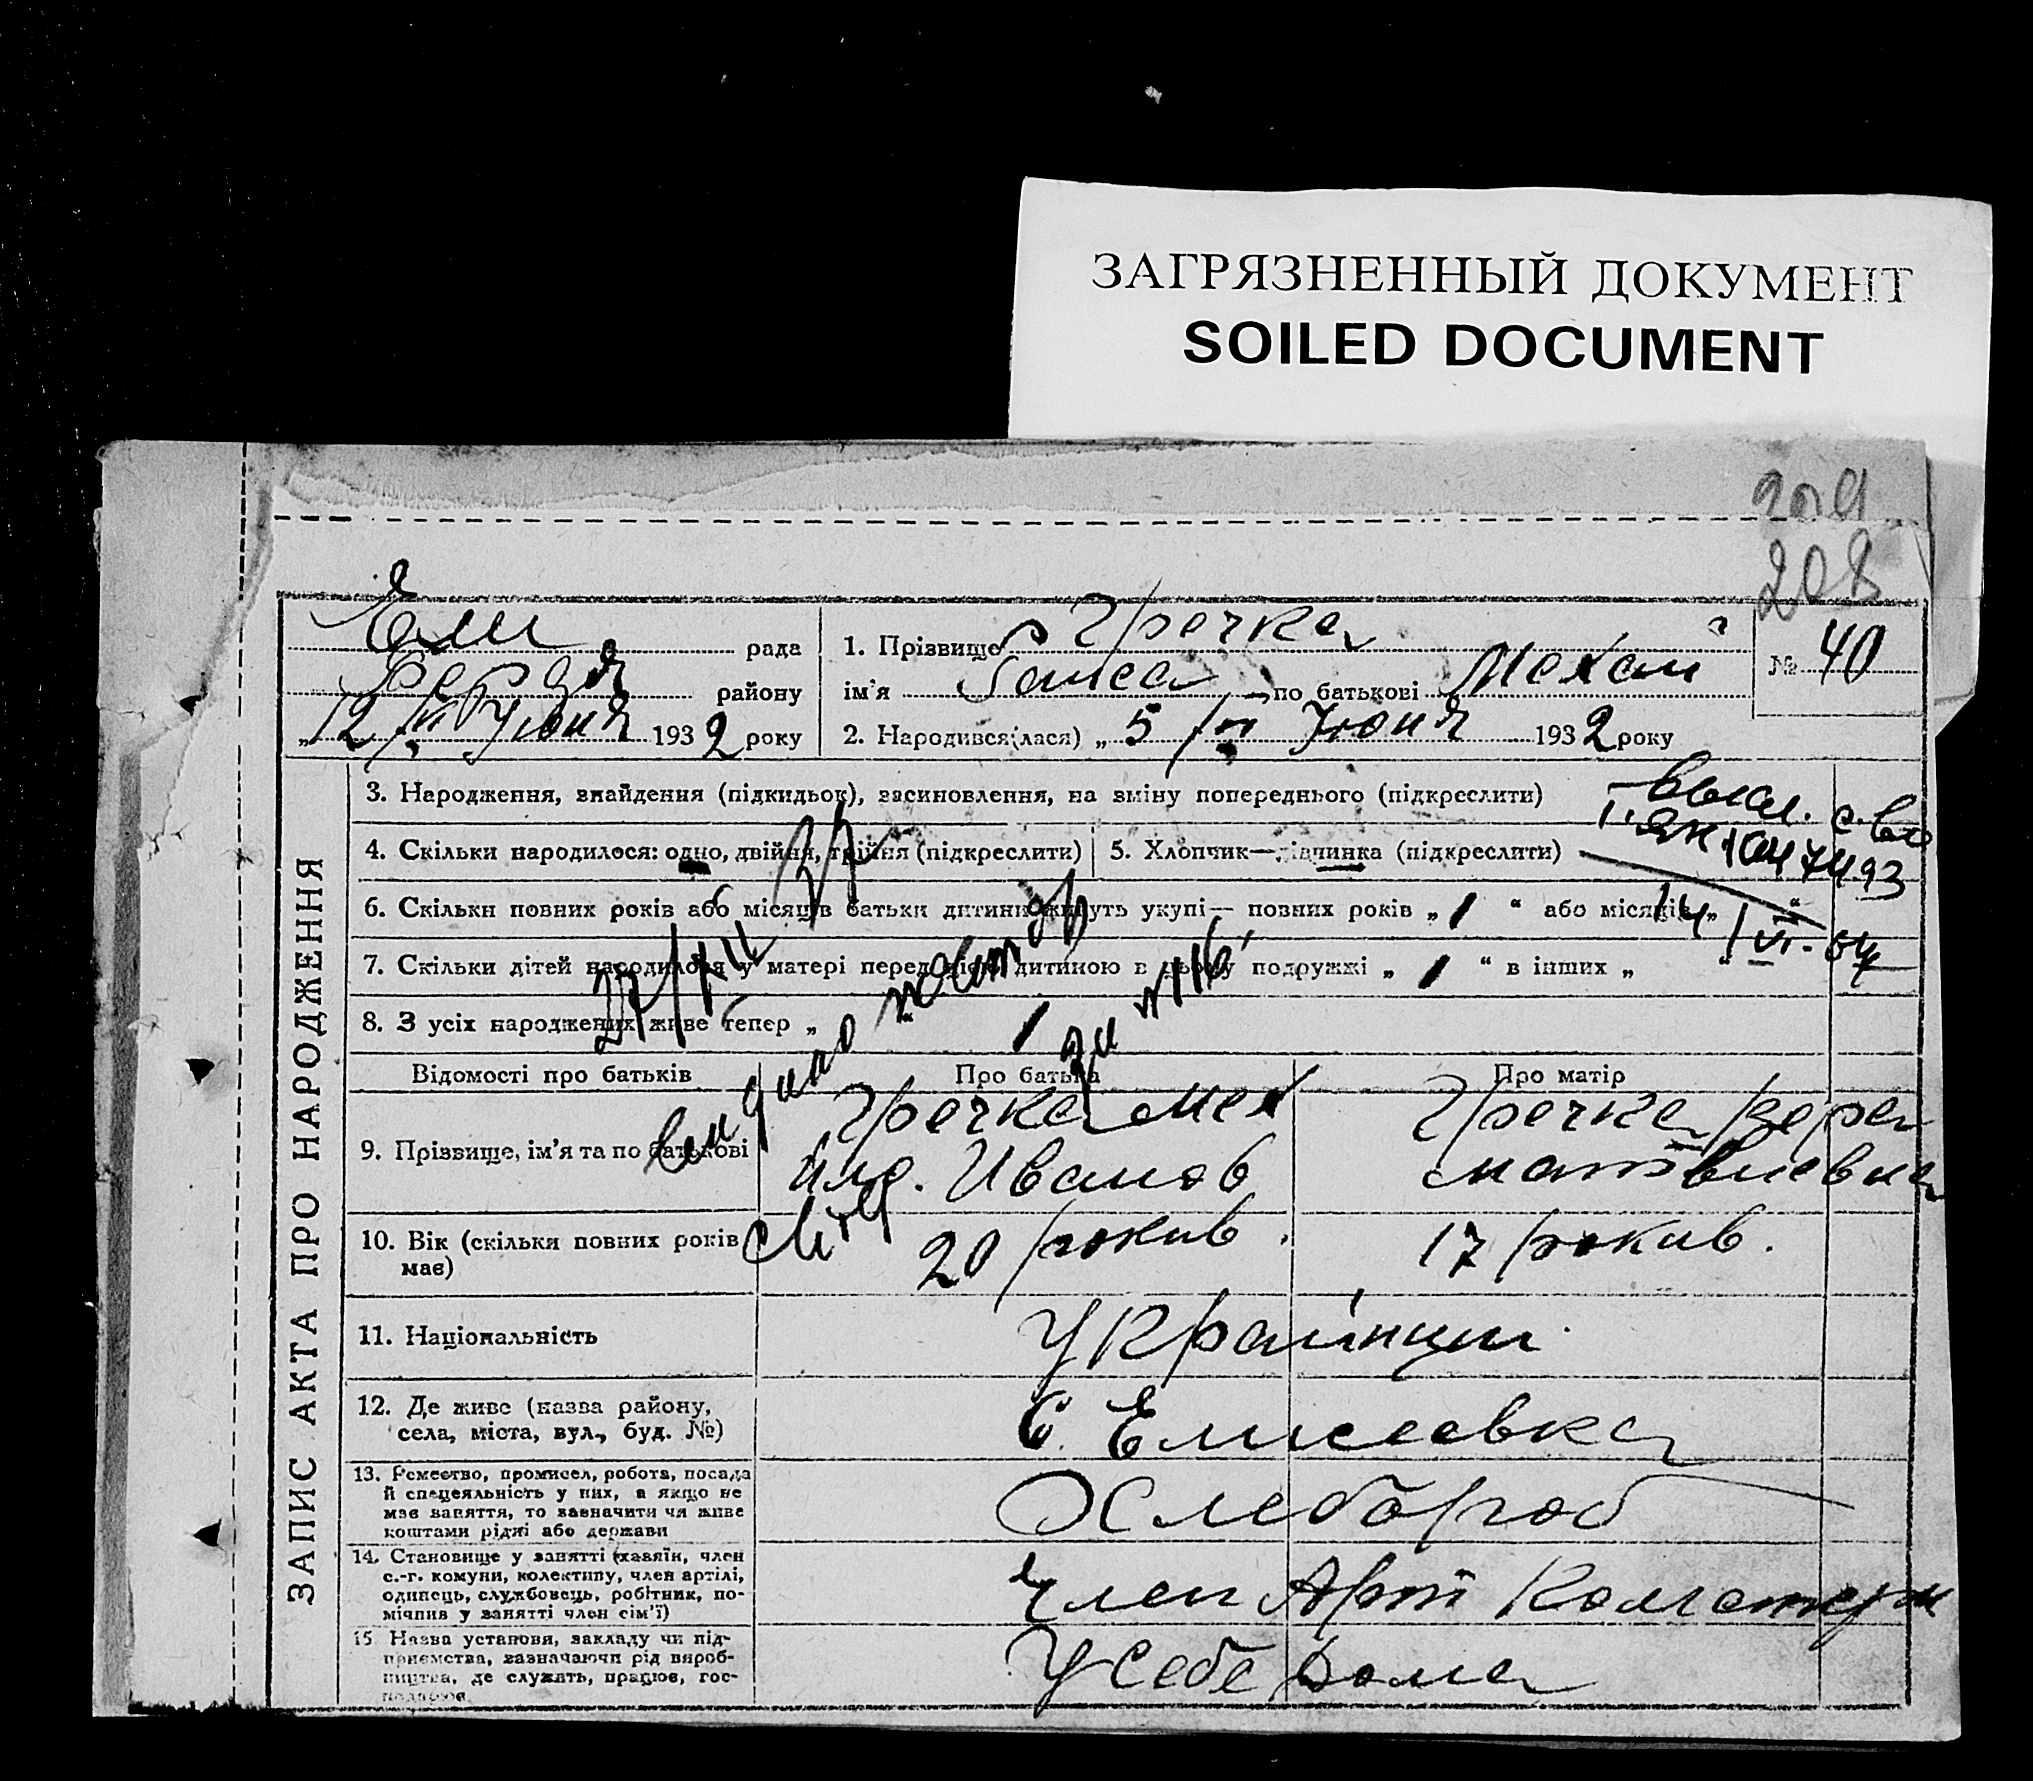 ЗАГРЯЗНЕННЫЙ ДОКУМЕНТ
SOILED DOCUMENT
209
208
Ели рада
Бердя району
„12/VI Июня 1932 року
1. Прізвище Гречка
ім'я Раиса по батькові Механ
2. Народився(лася) „5/VI Июня 1932 року
№ 40
ЗАПИС АКТА ПРО НАРОДЖЕННЯ
3. Народження, знайдення (підкидьок), засиновлення, на зміну попереднього (підкреслити)
4. Скільки народилося: одно, двійня, трійня (підкреслити)
5. Хлопчик—дівчинка (підкреслити)
6. Скільки повних років або місяців батьки дитини живуть укупі— повних років „1“ або місяців „ “
7. Скільки дітей народилося у матері перед цією дитиною в цьому подружжі „1“ в інших „ “
8. З усіх народжених живе тепер „1
14/VI-54
Відомості про батьків
Про батька
Про матір
9. Прізвище, ім'я та по батькові
Гречка Мех
Иванов
Гречка Вера
Матвеевна
10. Вік (скільки повних років має)
20 рокив.
17 рокив.
11. Національність
Украінци
12. Де живе (назва району,
села, міста, вул., буд. №)
С. Елисеевка
13. Ремество, промисел, робота, посада
й спецеяльність у них, а якщо не
має заняття, то зазначити чи живе
коштами рідні або держави
Хлебороб
14. Становище у занятті (хазяїн, член
с.-г. комуни, колективу, член артілі,
одинець, службовець, робітник, по-
мічник у занятті член сім'ї)
Член Арті
15 Назва установи, закладу чи під-
приємства, зазначаючи рід вироб-
ництва, де служить, працює, гос-
подарює
У себе Дома